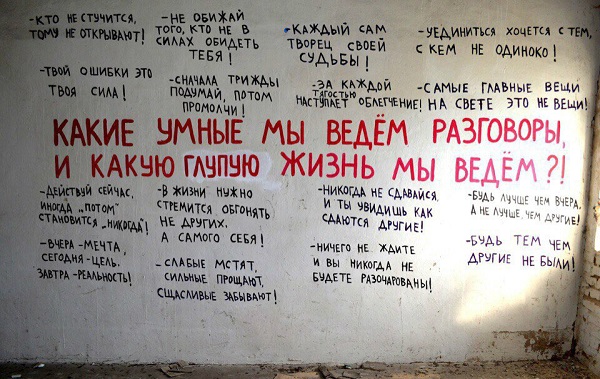 -КТО НЕ СТУЧИТСЯ,
ТОМУ НЕ ОТКРЫВАЮТ!
-НЕ ОБИЖАЙ
ТОГО, КТО НЕ В
СИЛАХ ОБИДЕТЬ
ТЕБЯ!
-КАЖДЫЙ САМ
ТВОРЕЦ СВОЕЙ
СУДЬБЫ!
-УЕДИНИТЬСЯ ХОЧЕТСЯ С ТЕМ,
С КЕМ НЕ ОДИНОКО!
-ТВОИ ОШИБКИ ЭТО
ТВОЯ СИЛА!
-СНАЧАЛА ТРИЖДЫ
ПОДУМАЙ, ПОТОМ
ПРОМОЛЧИ!
-ЗА КАЖДОЙ
ТЯГОСТЬЮ
НАСТУПАЕТ ОБЛЕГЧЕНИЕ!
-САМЫЕ ГЛАВНЫЕ ВЕЩИ
НА СВЕТЕ ЭТО НЕ ВЕЩИ!
КАКИЕ УМНЫЕ МЫ ВЕДЁМ РАЗГОВОРЫ,
И КАКУЮ ГЛУПУЮ ЖИЗНЬ МЫ ВЕДЁМ?!
-ДЕЙСТВУЙ СЕЙЧАС,
ИНОГДА "ПОТОМ"
СТАНОВИТСЯ "НИКОГДА"!
-В ЖИЗНИ НУЖНО
СТРЕМИТСЯ ОБГОНЯТЬ
НЕ ДРУГИХ,
А САМОГО СЕБЯ!
-НИКОГДА НЕ СДАВАЙСЯ,
И ТЫ УВИДИШЬ КАК
СДАЮТСЯ ДРУГИЕ!
-БУДЬ ЛУЧШЕ ЧЕМ ВЧЕРА,
А НЕ ЛУЧШЕ, ЧЕМ ДРУГИЕ!
-ВЧЕРА -МЕЧТА,
СЕГОДНЯ -ЦЕЛЬ.
ЗАВТРА -РЕАЛЬНОСТЬ!
-СЛАБЫЕ МСТЯТ,
СИЛЬНЫЕ ПРОЩАЮТ,
СЩАСЛИВЫЕ ЗАБЫВАЮТ!
-НИЧЕГО НЕ ЖДИТЕ
И ВЫ НИКОГДА НЕ
БУДЕТЕ РАЗОЧАРОВАНЫ!
-БУДЬ ТЕМ ЧЕМ
ДРУГИЕ НЕ БЫЛИ!